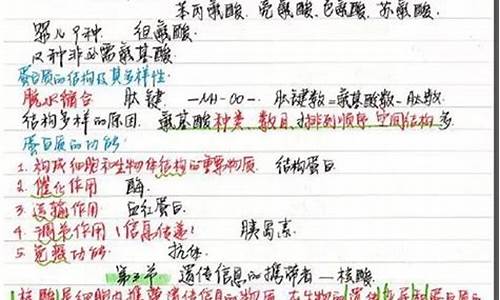 苯丙氨酸、亮氨酸、色氨酸、苏氨酸、
婴儿9种 组氨酸
12种非必需氨基酸
蛋白质的结构及其多样性
脱水缩合 肽键 —NH—CO—. 肽键数=氨基酸数－肽链数
结构多样的原因. 氨基酸种类、数目、排列顺序、空间结构
蛋白质的功能
1. 构成细胞和生物体结构的重要物质. 结构蛋白
2. 催化作用 酶
3. 运输作用 血红蛋白
4. 调节作用（信息传递） 胰岛素
5. 免疫功能 抗体
第三节 遗传信息的携带者—核酸
核酸是细胞内携带遗传信息的物质